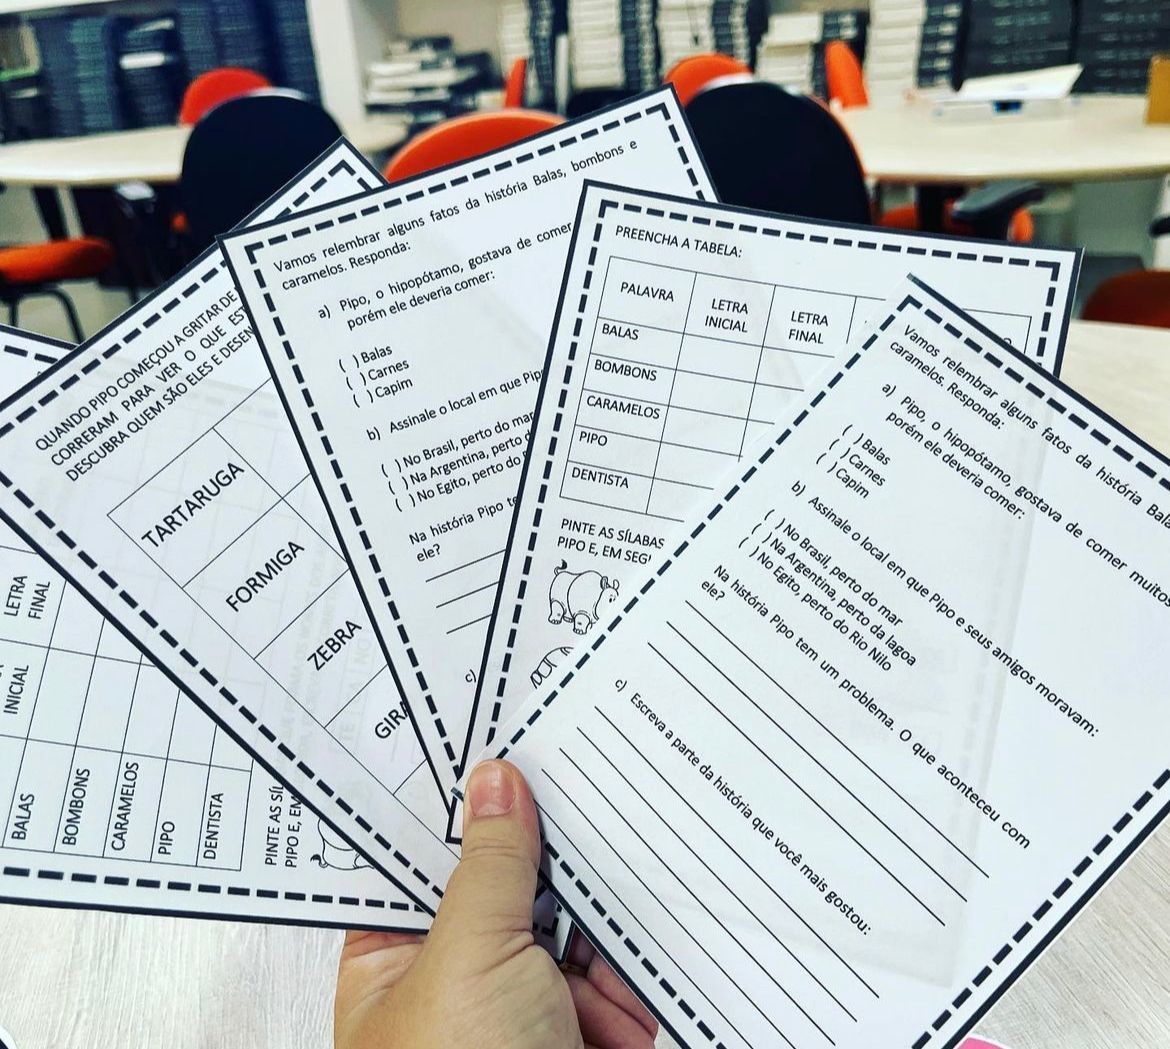 LETRA
FINAL
INICIAL
BALAS
BOMBONS
CARAMELOS
PIPO
DENTISTA
PINTE AS
PIPO E, EM
QUANDO PIPO COMEÇOU A GRITAR DE
CORRERAM PARA VER O QUE
DESCUBRA QUEM SÃO ELES E
TARTARUGA
FORMIGA
ZEBRA
Vamos relembrar alguns fatos da história Balas, bombons e
caramelos. Responda:
a) Pipo, o hipopótamo, gostava de comer
porém ele deveria comer:
( ) Balas
( ) Carnes
( ) Capim
b) Assinale o local em que
( ) No Brasil, perto do mar
( ) Na Argentina, perto
( ) No Egito, perto do
Na história Pipo
ele?
c)
PREENCHA A TABELA:
PALAVRA
LETRA
INICIAL
LETRA
FINAL
BALAS
BOMBONS
CARAMELOS
PIPO
DENTISTA
PINTE AS SÍLABAS
PIPO E, EM
Vamos relembrar alguns fatos da história
caramelos. Responda:
a) Pipo, o hipopótamo, gostava de comer
porém ele deveria comer:
( ) Balas
( ) Carnes
( ) Capim
b) Assinale o local em que Pipo e seus amigos moravam:
( ) No Brasil, perto do mar
( ) Na Argentina, perto da lagoa
( ) No Egito, perto do Rio Nilo
Na história Pipo tem um problema. O que aconteceu com
ele?
c) Escreva a parte da história que você mais gostou: